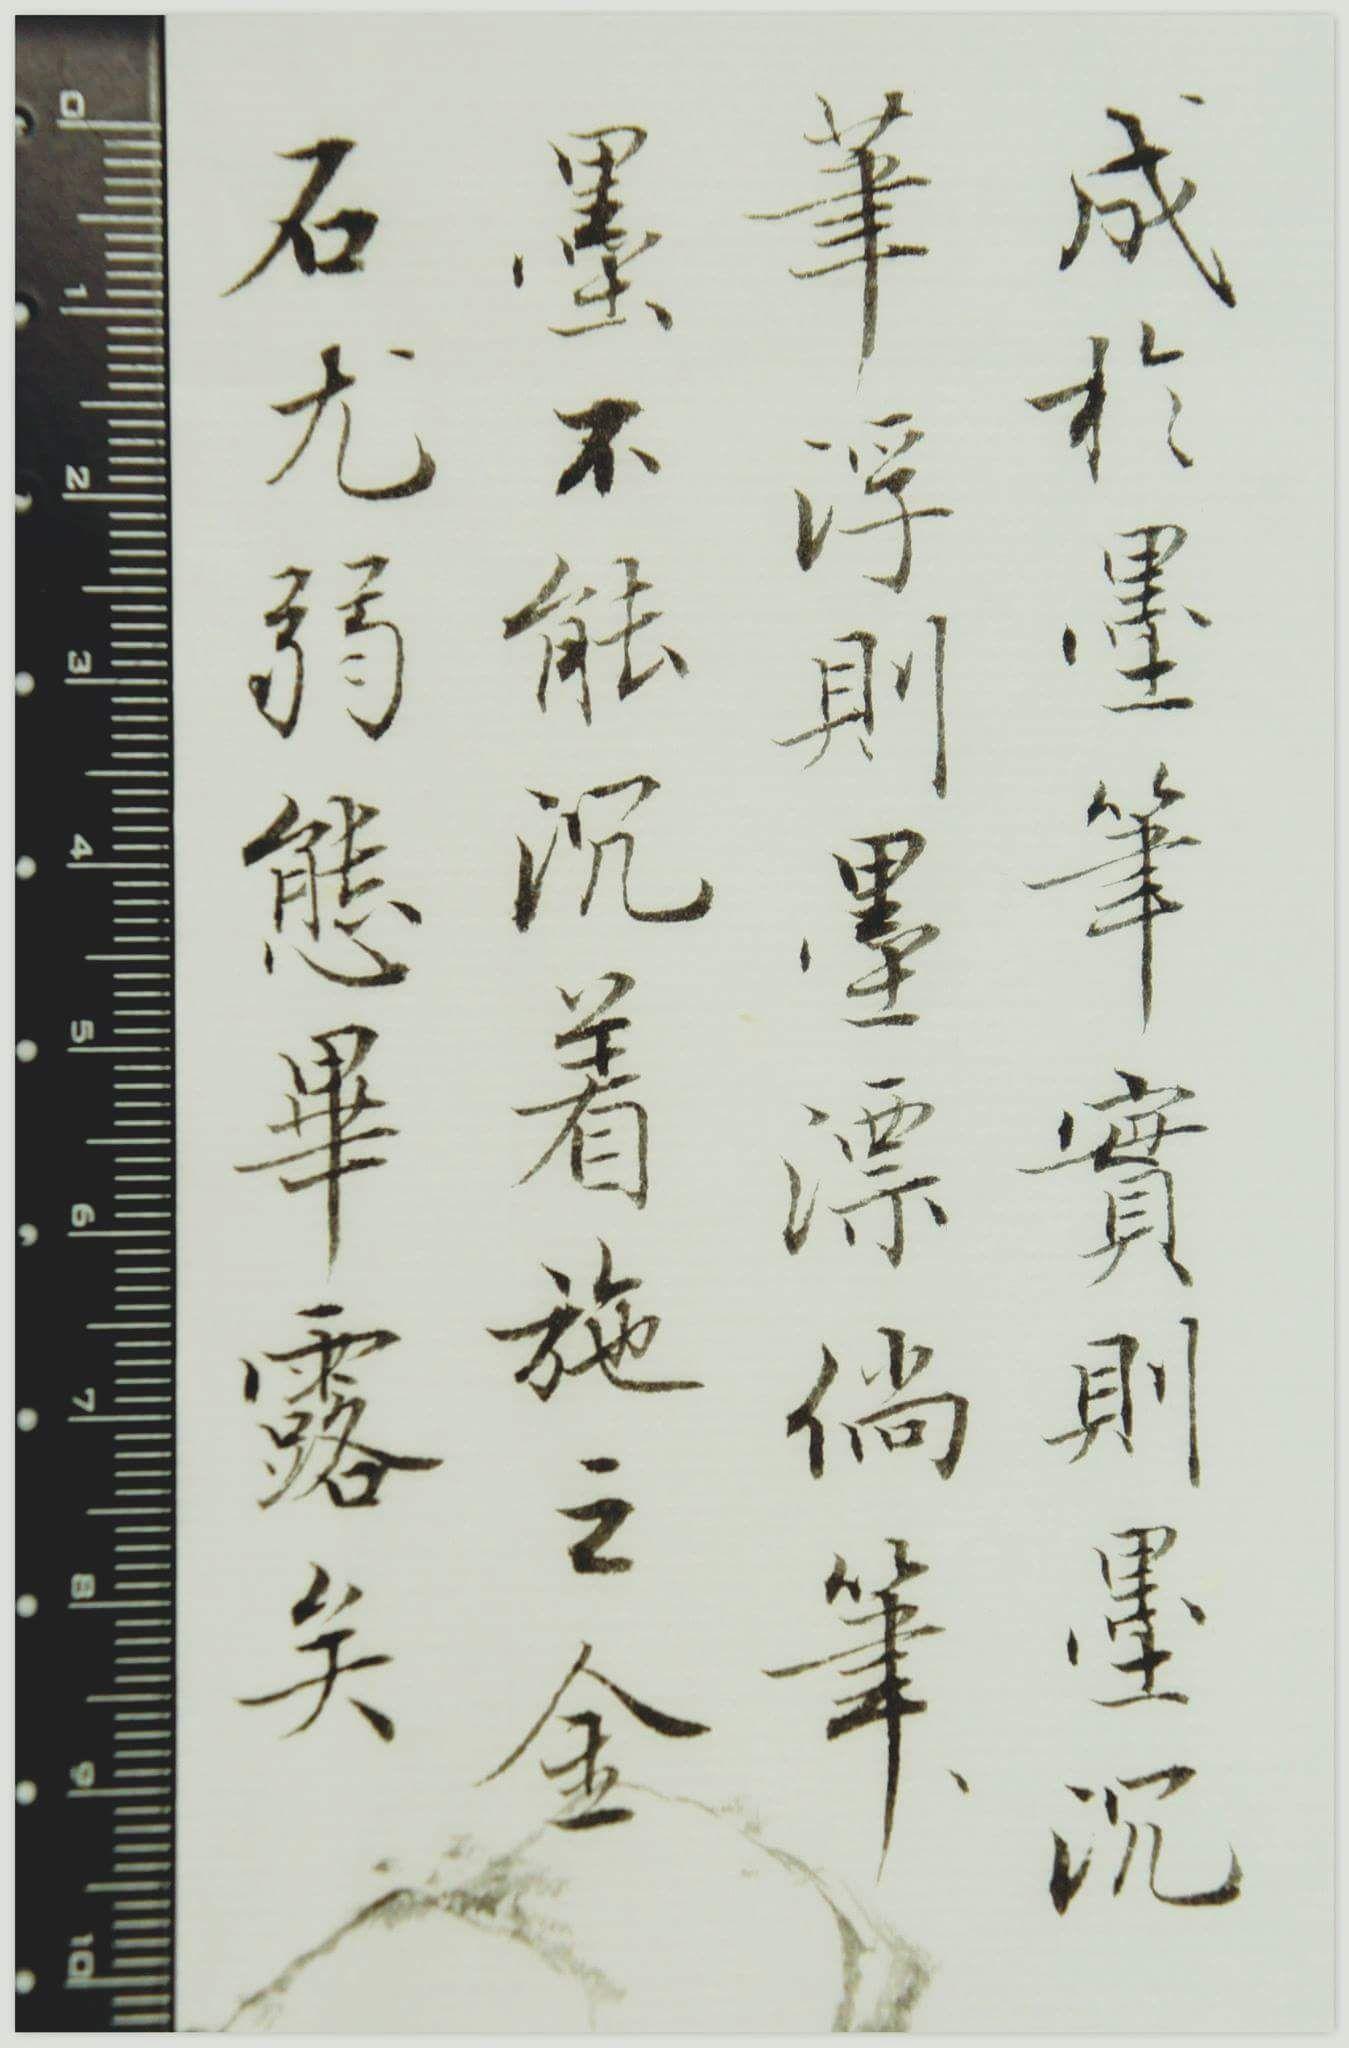 成於墨筆實則墨沉
筆浮則墨漂倘筆、
墨不能沉着施之金
石尤弱態畢露矣
0
1
2
3
4
5
6
7
8
9
10